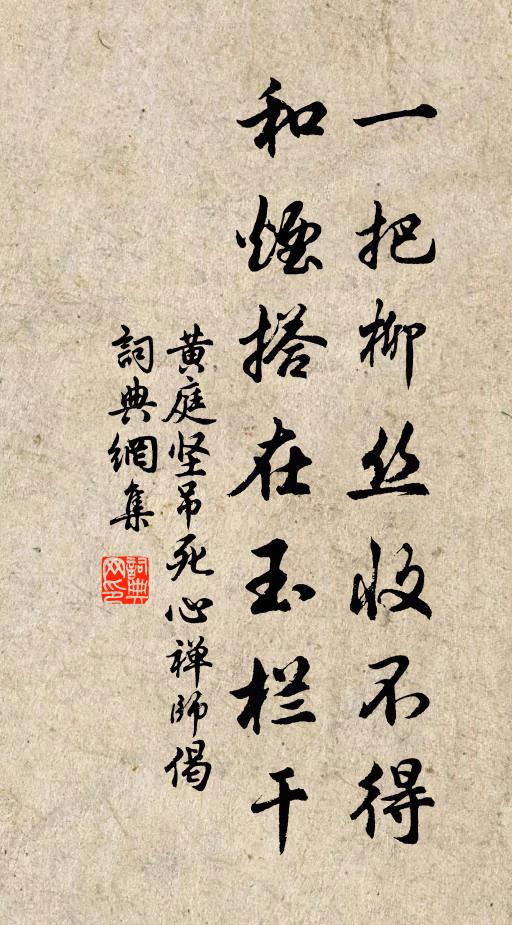 一把柳丝收不得
和烟搭在玉栏干
黄庭坚吊死心禅师偈
詞典網集
詞典网印